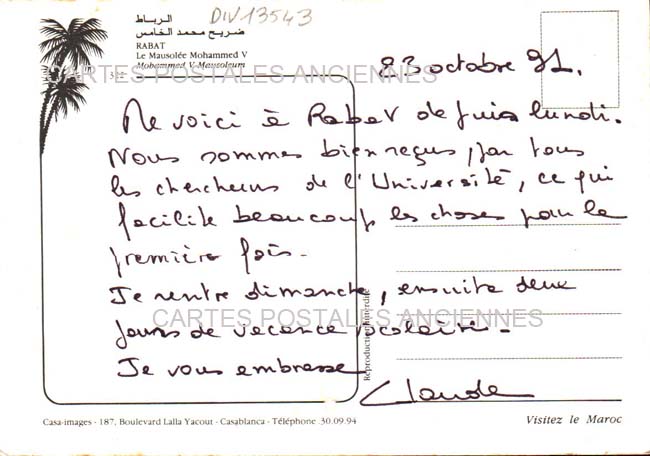 DIV13543
الرباط
ضريح محمد الخامس
RABAT
Le Mausolée Mohammed V
Mohammed V-Mausoleum
CARTES POSTALES ANCIENNES
23 octobre 91.
Me voici à Rabat depuis lundi.
Nous sommes bien reçus, par tous
les chercheurs de l'Université, ce qui
facilite beaucoup les choses pour la
première fois.
Je rentre dimanche, ensuite deux
jours de vacance scolaire.
CARTES POSTALES ANCIENNES
Je vous embrasse
Claude
Reproduction interdite
Casa-images - 187, Boulevard Lalla Yacout - Casablanca - Téléphone .30.09.94
Visitez le Maroc